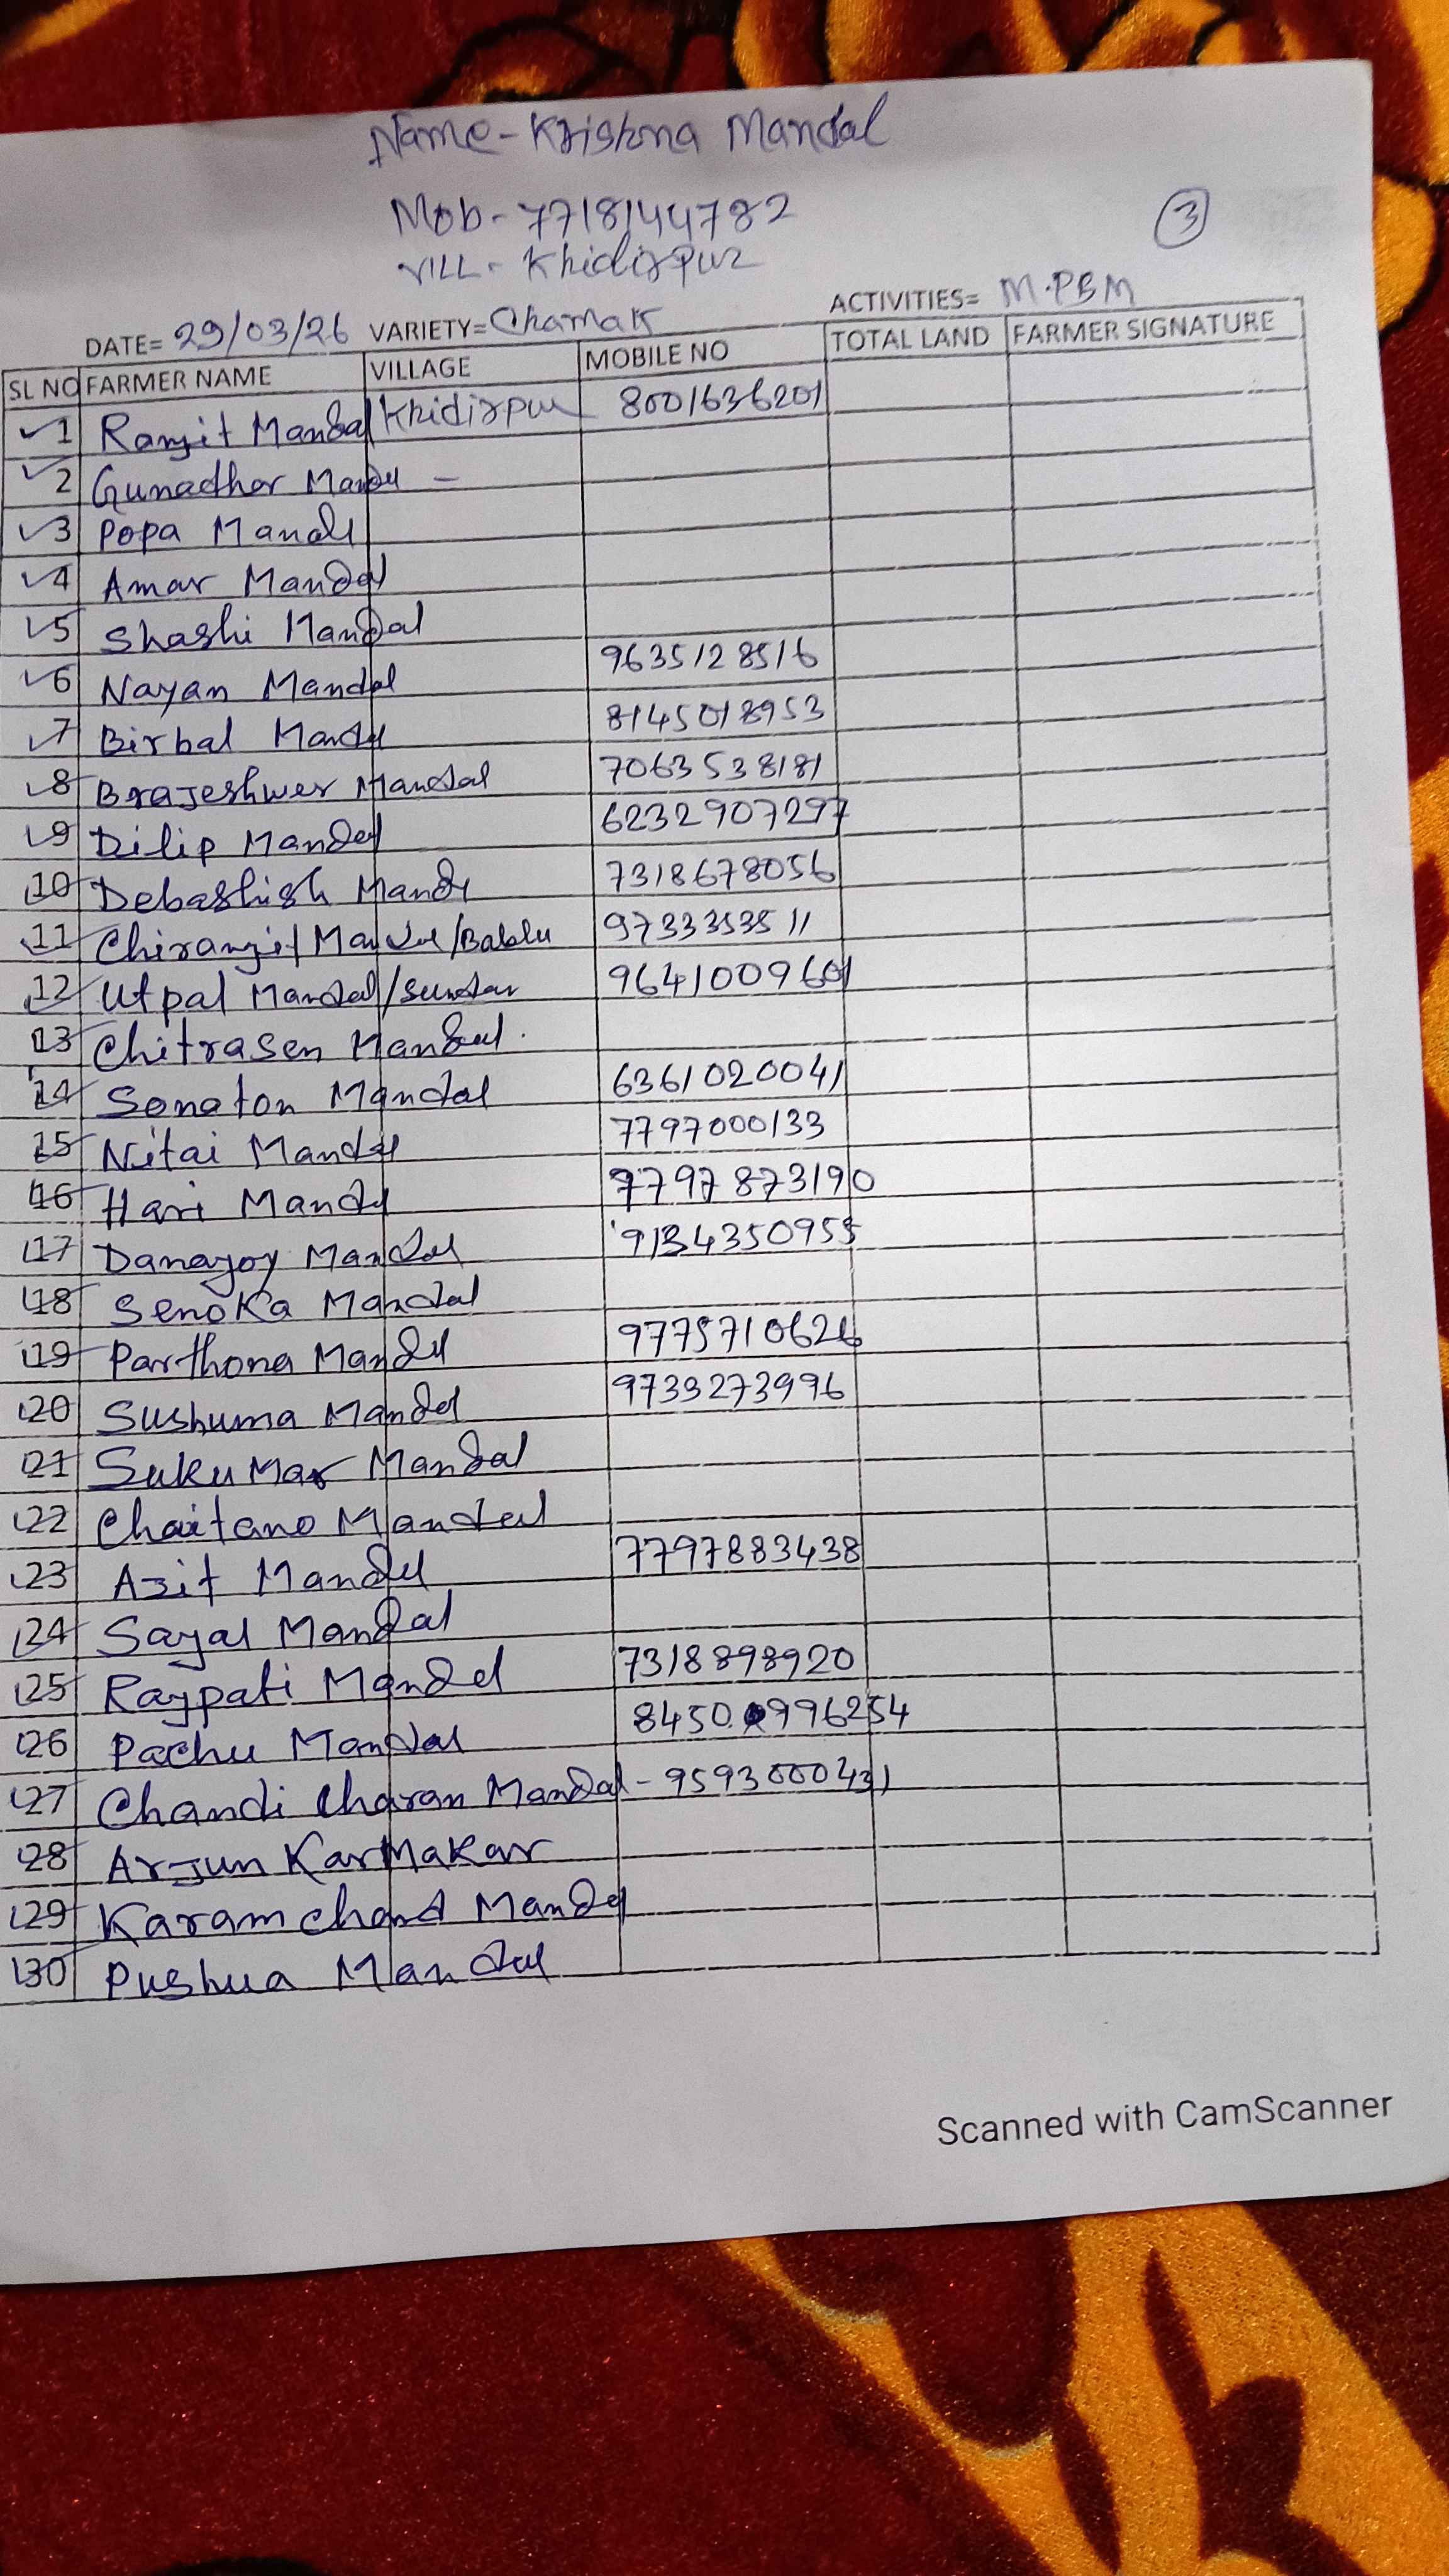 Name - Krishna Mandal
Mob - 7718144782
3
VILL - Khidirpur
DATE= 29/03/26 VARIETY= Chamak ACTIVITIES= M.PBM
SL NO FARMER NAME VILLAGE MOBILE NO TOTAL LAND FARMER SIGNATURE
1 Ranjit Mandal Khidirpur 8001636201
2 Gunadhar Mandal -
3 Popa Mandal
4 Amar Mandal
5 Shashi Mandal
6 Nayan Mandal 9635128516
7 Birbal Mandal 8145018953
8 Brajeshwer Mandal 7063538181
9 Dilip Mandal 6232907297
10 Debashish Mandal 7318678056
11 Chiranjit Mandal/Bablu 9733353511
12 Utpal Mandal/Sundar 9641009601
13 Chitrasen Mandal.
14 Sonaton Mandal 6361020041
15 Nitai Mandal 7797000133
16 Hari Mandal 7797873190
17 Danajoy Mandal
18 Senoka Mandal
19 Parthona Mandal 9775710626
20 Sushuma Mandal 9733273996
21 Sukumar Mandal
22 Chaitano Mandal
23 Ajit Mandal 7797883438
24 Sayal Mandal
25 Rajpati Mandal 7318898920
26 Pachu Mandal
27 Chandi Charan Mandal - 9593000431
28 Arjun Karmakar
29 Karamchand Mandal
30 Pushua Mandal
Scanned with CamScanner